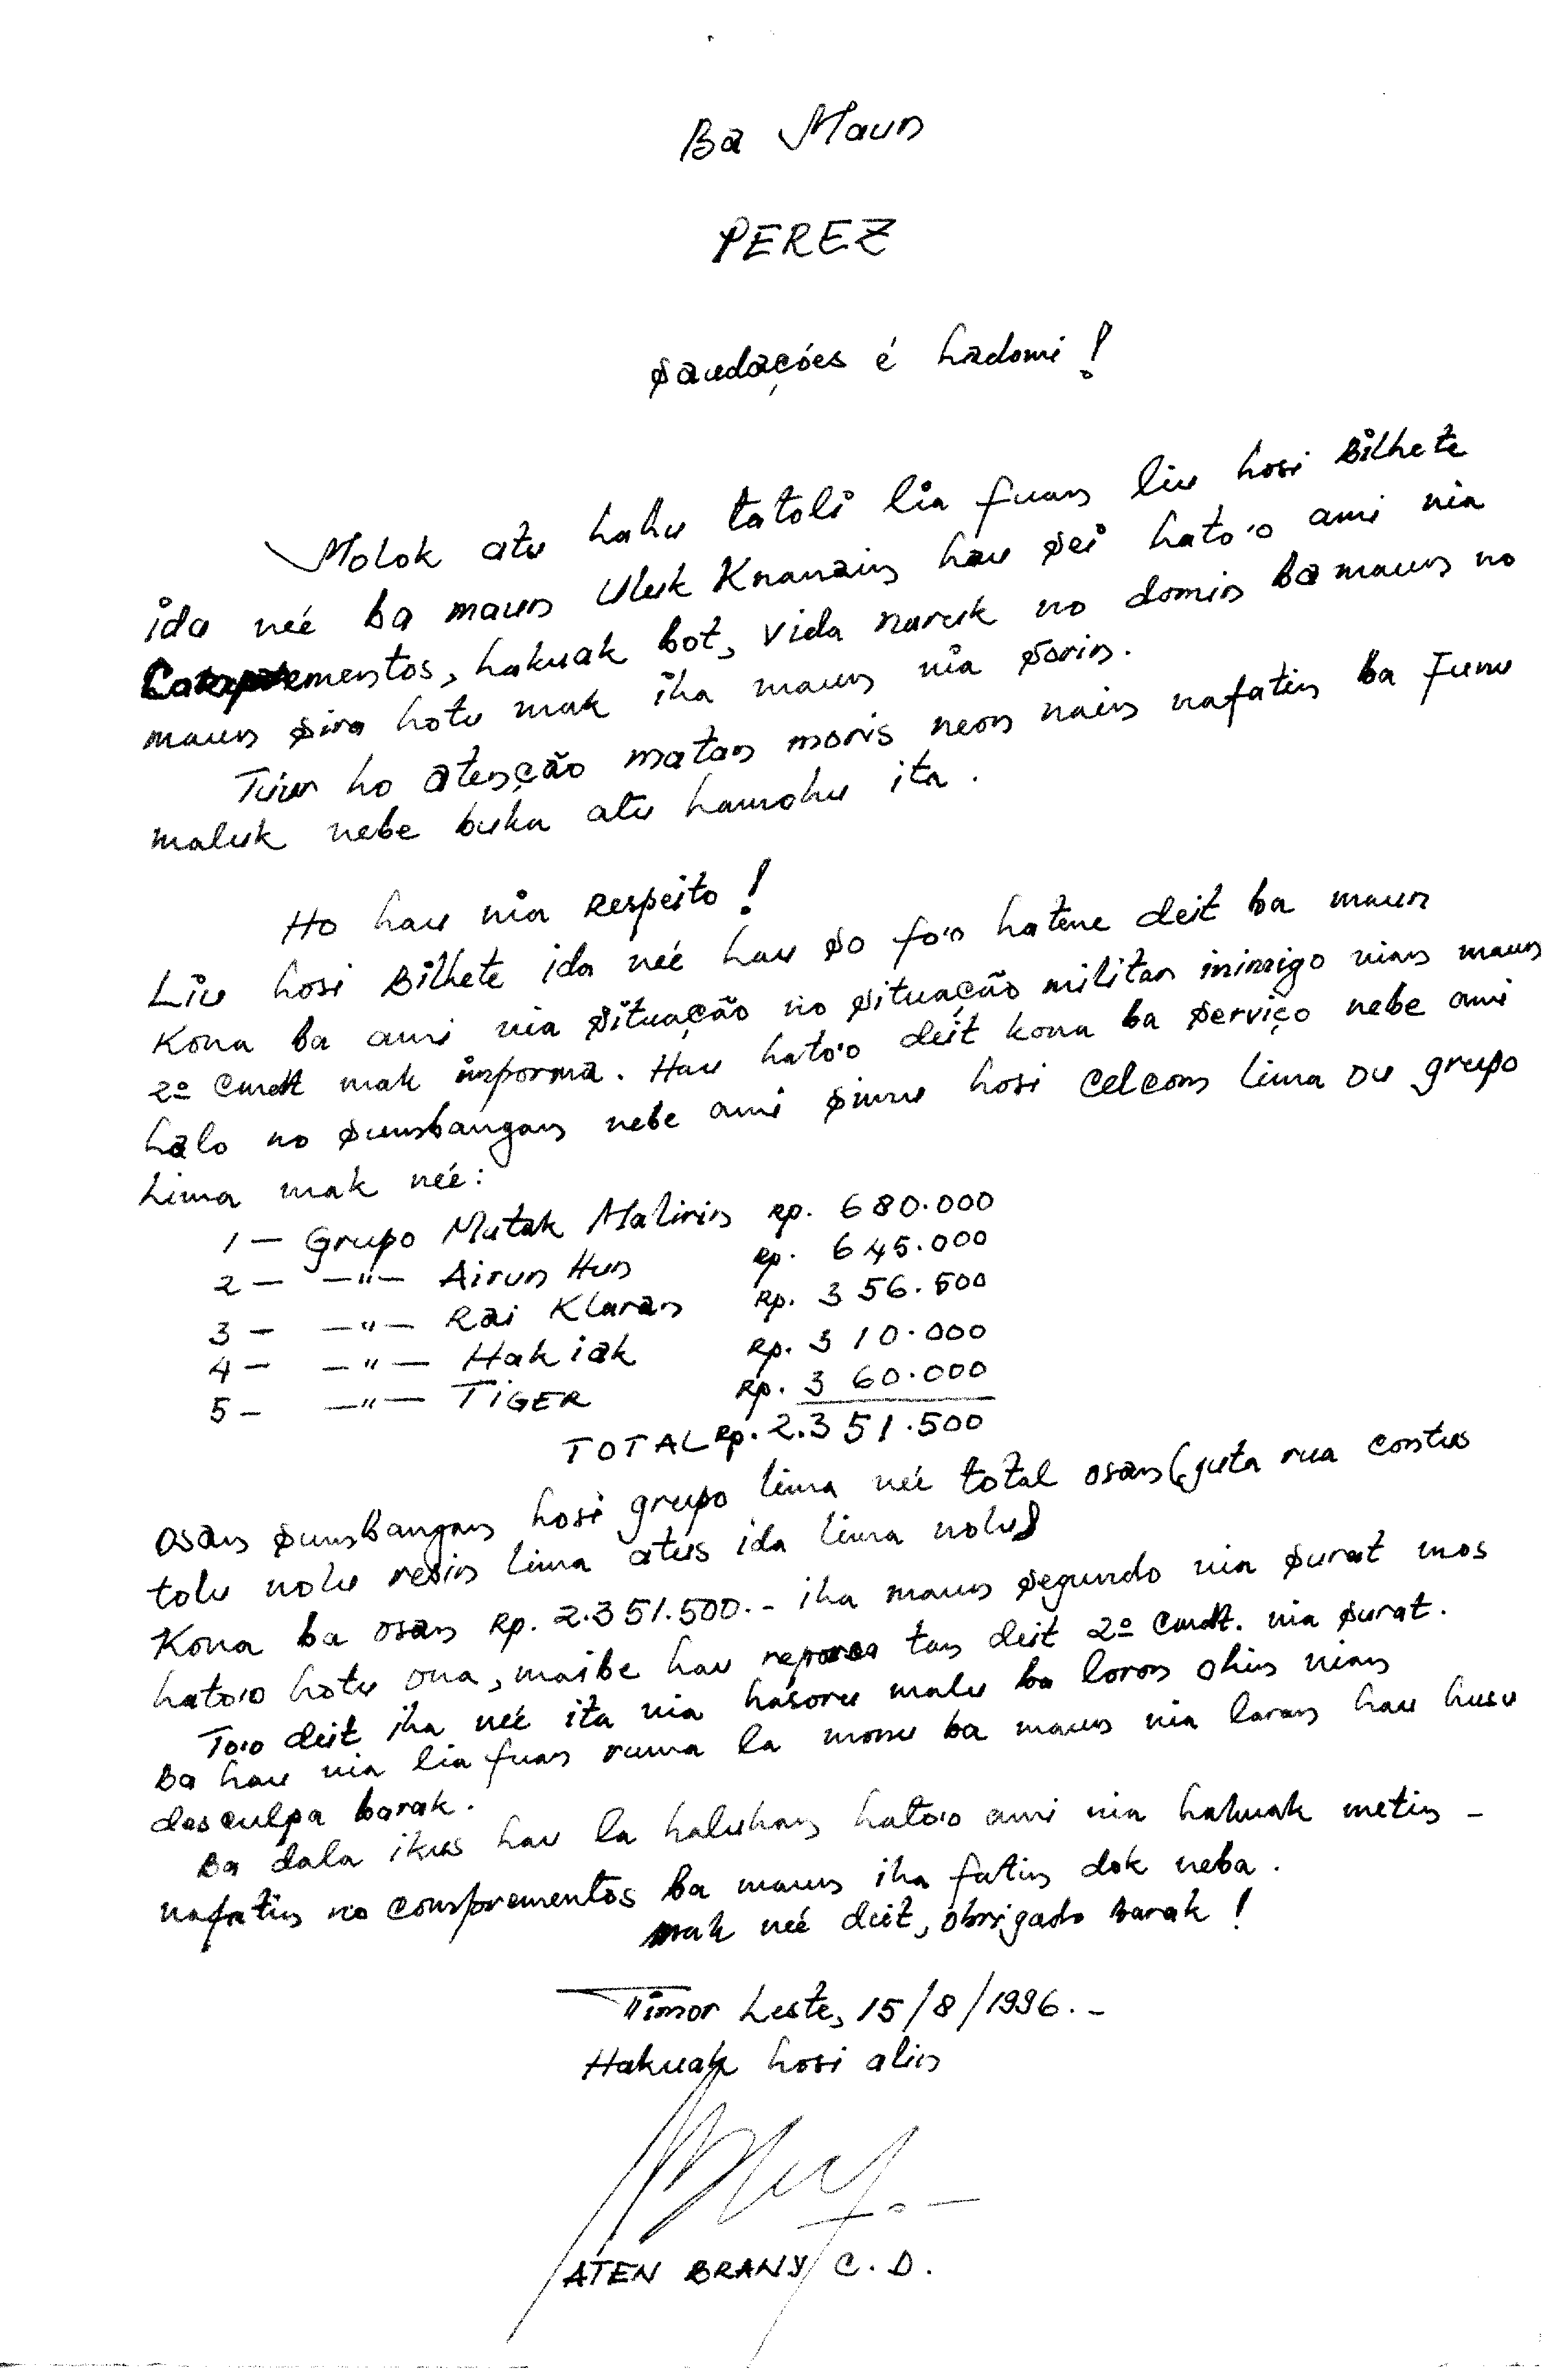 Ba Maun
PEREZ
Saudações é hadomi!
Molok atu hahu tatoli lia fuan liu hosi Bilhete
ida neé ba maun Uluk Knanain hau sei hato'o ami nia
ementos, hakuak bot, vida naruk no domin ba maun no
maun sira hotu mak iha maun nia sorin.
Tuir ho atenção matan moris neon nain nafatin ba Funu
maluk nebe buka atu hamohu ita.
Ho hau nia Respeito!
Liu hosi Bilhete ida neé hau so fo'o hatene deit ba maun
Kona ba ami nia situação no situação militar inimigo nian maun
2º Cmdt mak informa. Hau hato'o deit kona ba serviço nebe ami
halo no sumbangan nebe ami simu hosi Celcom lima ou grupo
Lima mak neé:
1 — Grupo Matak Malirin Rp. 680.000
2 — —"— Airun Hun Rp. 645.000
3 — —"— Rai Klaran Rp. 356.500
4 — —"— Hakiak Rp. 310.000
5 — —"— TIGER Rp. 360.000
TOTAL Rp. 2.351.500
Osan sumbangan hosi grupo lima neé total osan (juta rua contus
tolu nolu resin lima atus ida lima nolu)
Kona ba osan Rp. 2.351.500.- iha maun segundo nia surat mos
hato'o hotu ona, maibe hau tan deit 2º Cmdt. nia surat.
To'o deit iha neé ita nia hasoru malu ba loron ohin nian
Ba hau nia lia fuan ruma la monu ba maun nia laran hau husu
desculpa barak.
Ba dala ikus hau la haluhan hato'o ami nia hakuak metin -
nafatin no comprementos ba maun iha fatin dok neba.
mak neé deit, obrigado barak!
Timor Leste, 15/8/1996.-
Hakuak hosi alin
ATEN BRANY C.D.